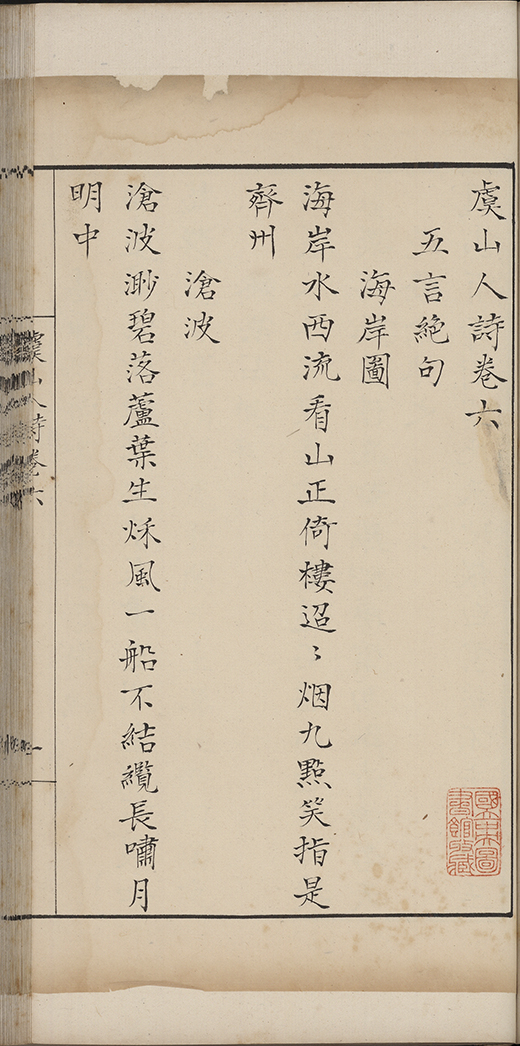 虞山人詩卷六
五言絕句
海岸圖
海岸水西流看山正倚樓迢〻烟九點笑指是
齊州
滄波
滄波渺碧落蘆葉生秌風一船不結纜長嘯月
明中
虞山人詩卷六
國立中央圖書館收藏